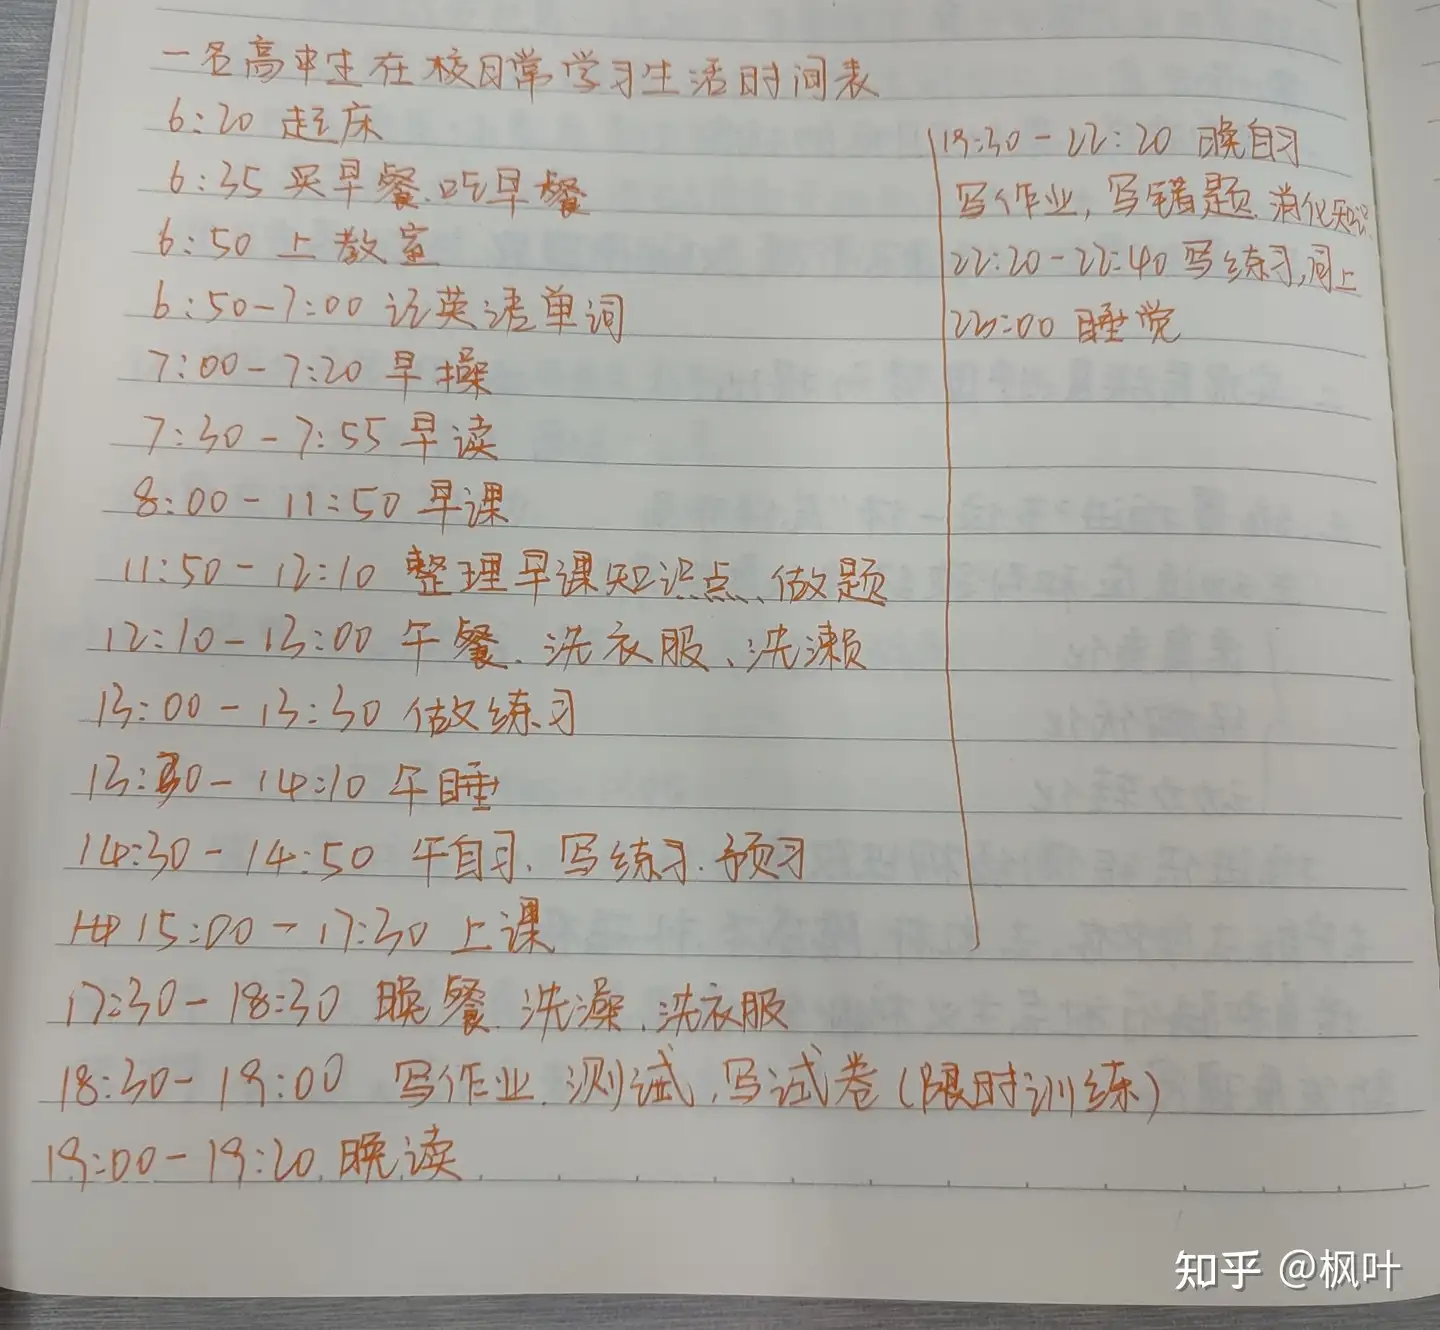 一名高中生在校日常学习生活时间表
6:20 起床
6:35 买早餐、吃早餐
6:50 上教室
6:50-7:00 记英语单词
7:00-7:20 早操
7:30-7:55 早读
8:00-11:50 早课
11:50-12:10 整理早课知识点、做题
12:10-13:00 午餐、洗衣服、洗濑
13:00-13:30 做练习
13:30-14:10 午睡
14:30-14:50 午自习、写练习、预习
15:00-17:30 上课
17:30-18:30 晚餐、洗澡、洗衣服
18:30-19:00 写作业、测试、写试卷(限时训练)
19:00-19:20 晚读
19:30-22:20 晚自习
写作业,写错题、消化知识
22:20-22:40 写练习,同上
23:00 睡觉
知乎 @枫叶